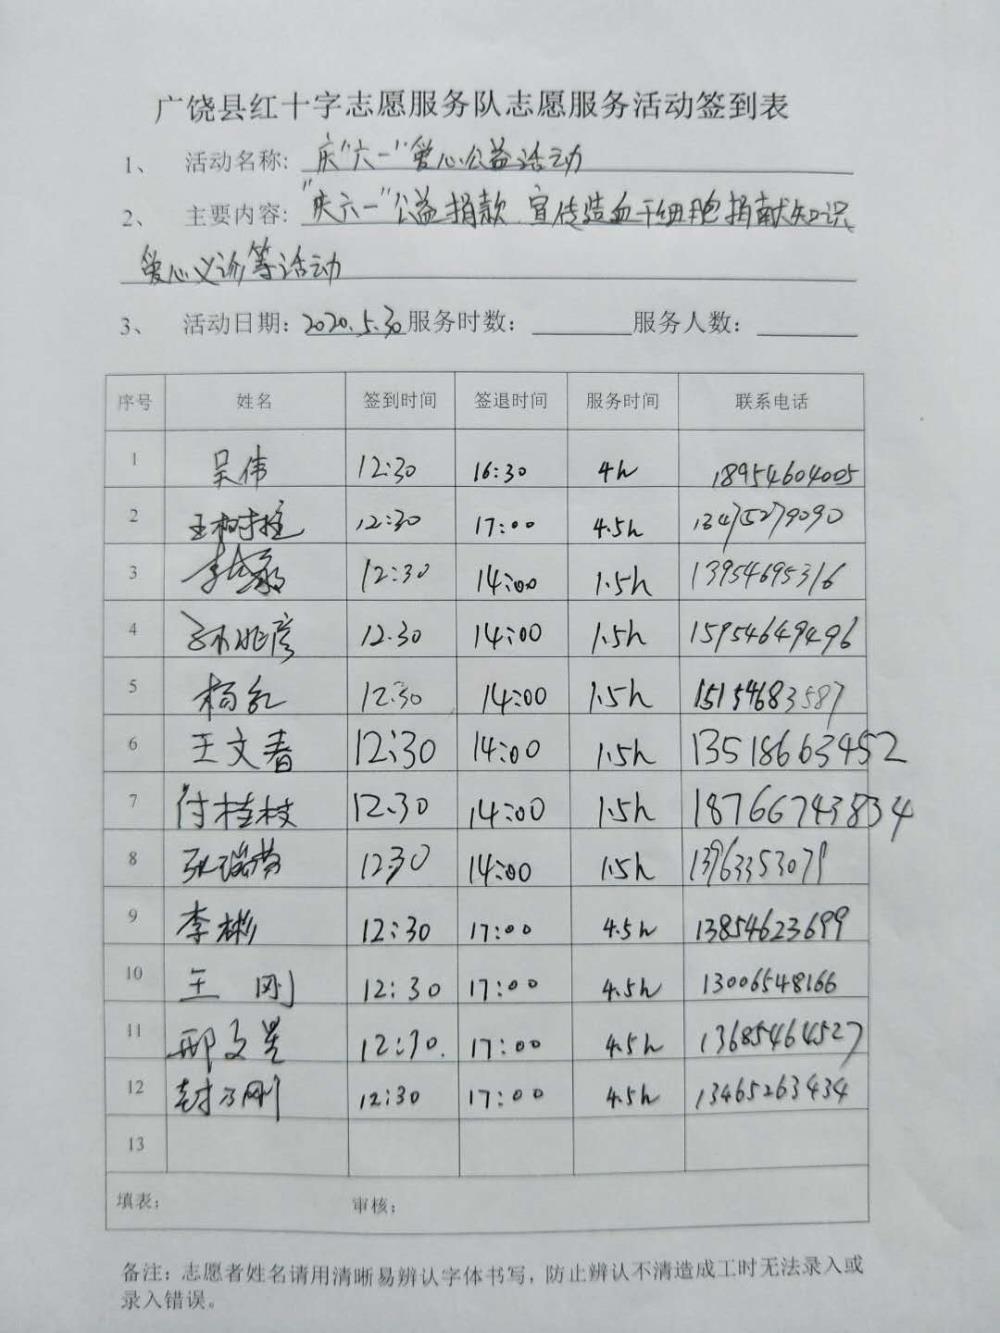 广饶县红十字志愿服务队志愿服务活动签到表
1、 活动名称: 庆"六一"爱心公益活动
2、 主要内容: "庆六一"公益捐款 宣传造血干细胞捐献知识
爱心义诊等活动
3、 活动日期: 2020.5.30 服务时数: 服务人数:
序号 姓名 签到时间 签退时间 服务时间 联系电话
1 吴伟 12:30 16:30 4h 18954604005
2 王树柱 12:30 17:00 4.5h 13475279090
3 12:30 14:00 1.5h 13954695316
4 孙兆彦 12.30 14:00 1.5h 15954649496
5 杨红 12:30 14:00 1.5h 15154683587
6 王文春 12:30 14:00 1.5h 13518663452
7 付桂枝 12.30 14:00 1.5h 18766743834
8 张瑞 1230 14:00 1.5h 13963353079
9 李彬 12:30 17:00 4.5h 13854623699
10 王 刚 12:30 17:00 4.5h 13006548166
11 邢文星 12:30. 17:00 4.5h 13685464527
12 封乃刚 12:30 17:00 4.5h 13465263434
13
填表: 审核:
备注:志愿者姓名请用清晰易辨认字体书写,防止辨认不清造成工时无法录入或
录入错误。